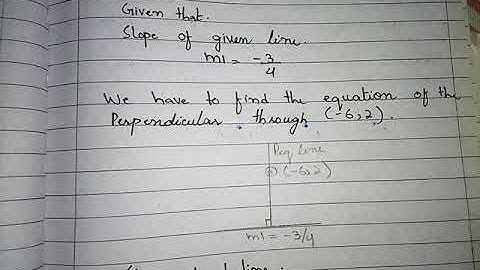 Given that.
Slope of given line.
m1 = -3/4
We have to find the equation of the
Perpendicular through (-6,2).
Req line
(-6,2)
m1 = -3/4